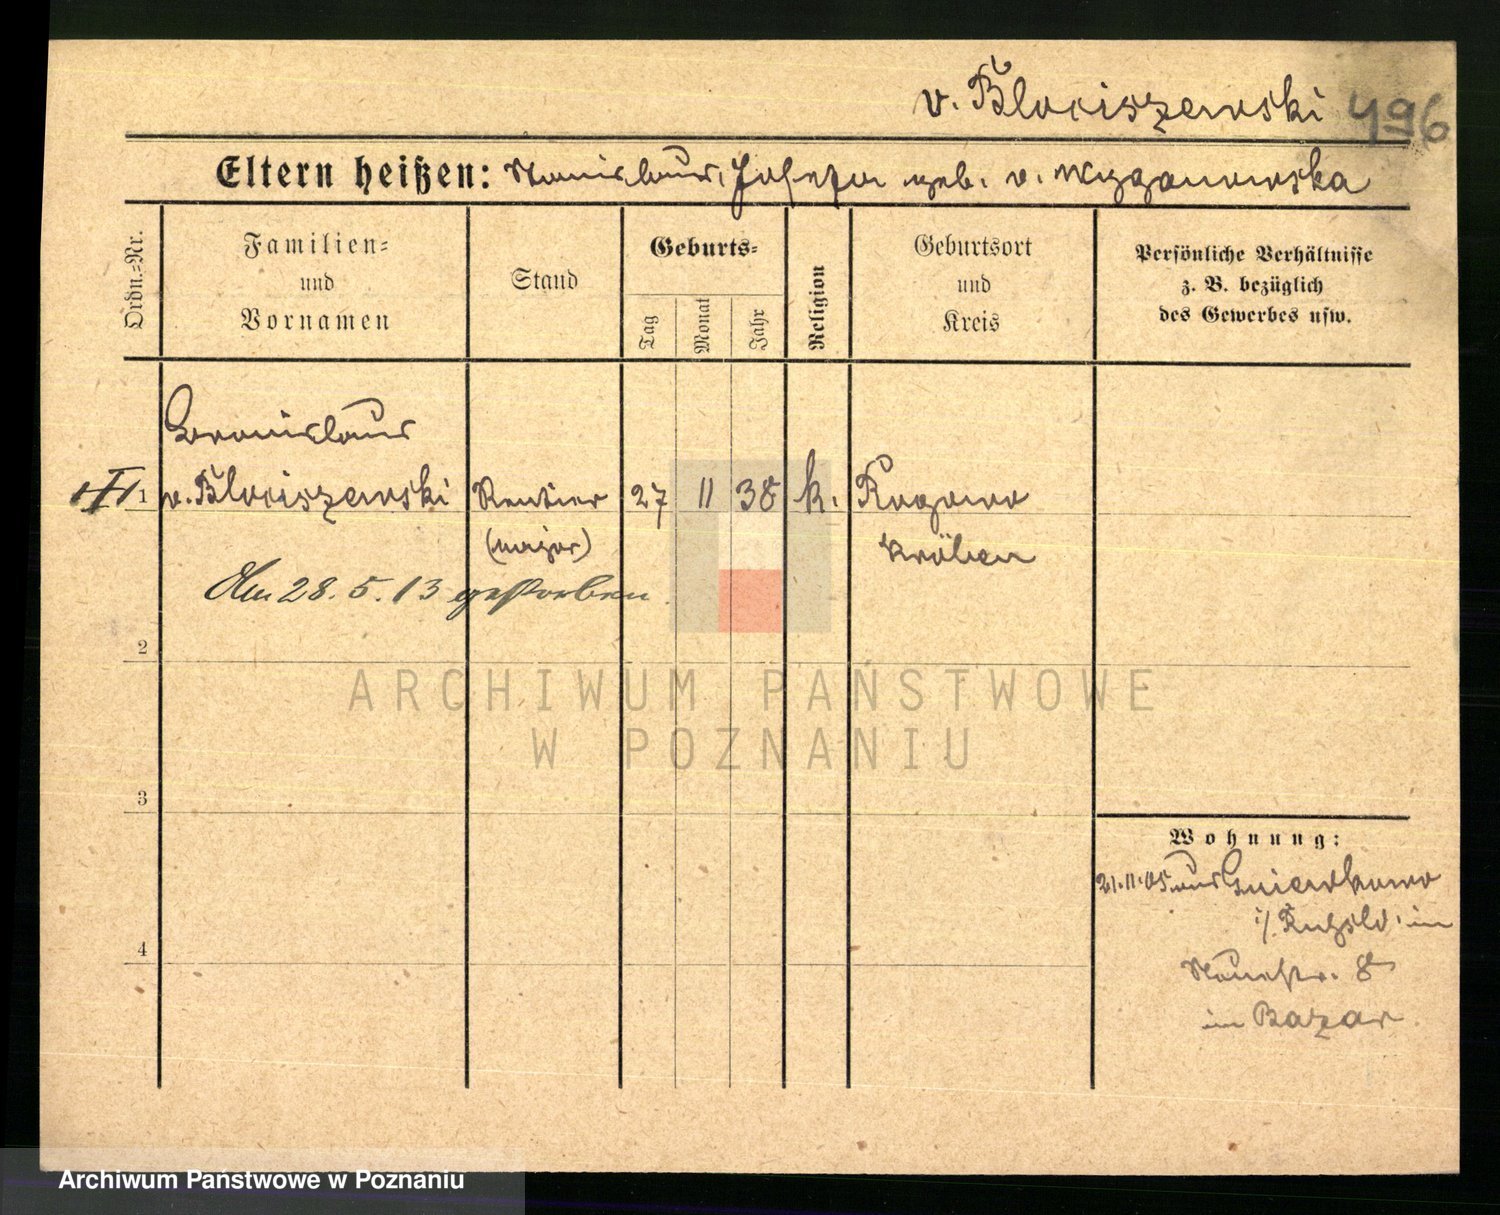 v. Blociszewski 496
Eltern heißen: Stanislaus, Josefa geb. v. Wyganowska
Ordn.-Nr.
Familien-
und
Vornamen
Stand
Geburts-
Tag
Monat
Jahr
Religion
Geburtsort
und
Kreis
Persönliche Verhältnisse
z. B. bezüglich
des Gewerbes usw.
Bronislaus
1 v. Blociszewski Rentier 27 11 38 k. Rogowo
(major) Kröben
Am 28.5.13 gestorben
2
3
4
Wohnung:
21.11.05 aus Gniewkowo
in
Neuestr. 8
im Bazar
ARCHIWUM PAŃSTWOWE
W POZNANIU
Archiwum Państwowe w Poznaniu